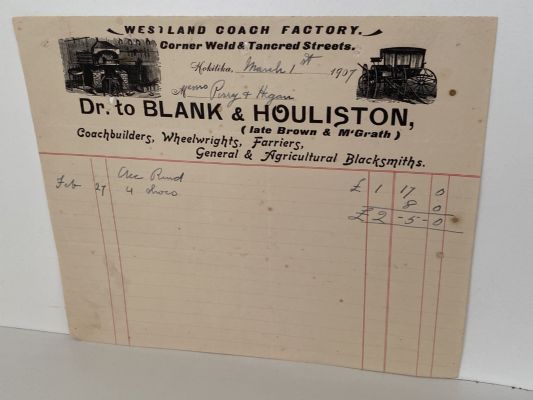 WESTLAND COACH FACTORY.
Corner Weld & Tancred Streets.
Hokitika, March 1st 1907
Messrs Perry & Hogan
Dr. to BLANK & HOULISTON,
(late Brown & McGrath)
Coachbuilders, Wheelwrights, Farriers,
General & Agricultural Blacksmiths.
Acc Rend £ 1 17 0
Feb 27 4 shoes 8 0
£ 2 - 5 - 0